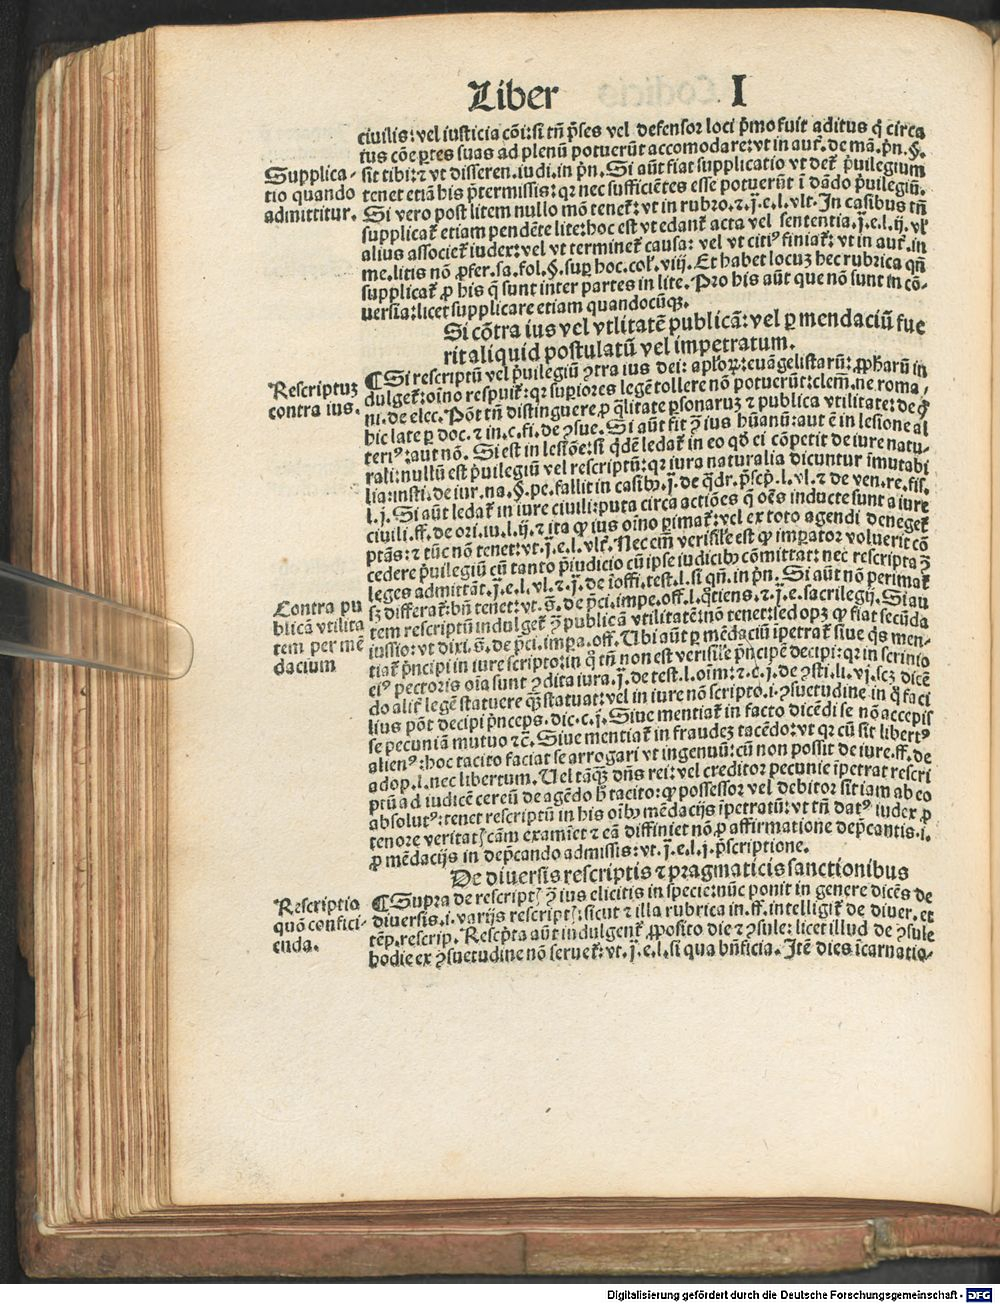 Liber I
ciuilis: vel iusticia cōi: si tñ p̄ses vel defensor loci p̄mo fuit aditus q̄ circa
tus cōe ꝑtes suas ad plenū potuerūt accomodare: vt in aut̄. de mā. p̄n. §.
Supplica-
tio quando
admittitur.
sit tibi: ⁊ vt differen. iudi. in p̄n. Si aūt fiat supplicatio vt det̄ p̄uilegium
tenet etiā his p̄termissis: qꝛ nec sufficiētes esse potuerūt ī dādo p̄uilegiū.
Si vero post litem nullo mō tenet̄: vt in rubꝛo. ⁊.j̄.e.l. vlt. In casibus tñ
supplicat̄ etiam pendēte lite: hoc est vt edant̄ acta vel sententia. j̄.e.l.ij. vl̓
alius associet̄ iudex: vel vt terminet̄ causa: vel vt citiꝰ finiat̄: vt in aut̄. in
me. litis nō ꝓfer. sa. fol. §. suꝑ hoc. col̓. viij. Et habet locuꝫ hec rubrica qñ
supplicat̄ ꝓ his q̄ sunt inter partes in lite. Pro his aūt que nō sunt in cō-
uersia: licet supplicare etiam quandocūqꝫ.
Si cōtra ius vel vtlitatē publicā: vel ꝑ mendaciū fue
rit aliquid postulatū vel impetratum.
Rescriptuꝫ
contra ius.
¶ Si rescriptū vel p̄uilegiū ꝯtra ius dei: apl̓oꝝ: euāgelistarū: ꝓph̄arū in
dulget̄: oīno respuit̄: qꝛ suꝑiores legē tollere nō potuerūt: clem̄. ne roma-
ni. de elec. Pōt tñ distinguere ꝓ q̄litate ꝑsonaruꝫ ⁊ publica vtilitate: de q̄
hic late ꝑ doc. ⁊ in. c. fi. de ꝯsue. Si aūt fit ꝯ̄ ius hūanū: aut ē in lesione al
teriꝰ: aut nō. Si est in lesiōe: si q̄dē ledat̄ in eo qd̓ ei cōpetit de iure natu-
rali: nullū est p̄uilegiū vel rescriptū: qꝛ iura naturalia dicuntur īmutabi
lia: insti. de iur. na. §. pe. fallit in casibꝰ. j̄. de q̄dr. p̄scp̄. l. vl. ⁊ de ven. re. fis.
l. j. Si aūt ledat̄ in iure ciuili: puta circa actiōes q̄ oēs inducte sunt a iure
ciuili. ff. de ori. iu. l. ij. ⁊ ita ꝙ ius oīno ꝑimat̄: vel ex toto agendi deneget̄
ptās: ⁊ tūc nō tenet: vt. j̄.e.l. vlt̄. Nec em̄ verisil̓e est ꝙ imꝑator voluerit cō
cedere p̄uilegiū cū tanto p̄iudicio cū ipse iudicibꝰ cōmittat: nec rescripta ꝯ̄
leges admittāt. j̄.e.l. vl. ⁊ j̄. de īoffi. test. l. si qñ. in p̄n. Si aūt nō perimat̄
Contra pu
blicā vtilita
tem per mē
dacium
sꝫ differat̄: bn̄ tenet: vt. s̄. de p̄ci. impe. off. l. q̄tiens. ⁊. j̄.e. sacrilegij. Si au
tem rescriptū indulget̄ ꝯ̄ publicā vtilitatē: nō tenet: sed opꝫ ꝙ fiat secūda
iussio: vt dixi. s̄. de p̄ci. imꝑa. off. Ubi aūt ꝑ mēdaciū īpetrat̄ siue q̄s men-
tiat̄ p̄ncipi in iure scripto: in q̄ tñ non est verisil̓e p̄ncipē decipi: qꝛ in scrinio
eiꝰ pectoris oīa sunt ꝯdita iura. j̄. de test. l. oīm: ⁊. c. j. de ꝯsti. li. vj. scꝫ dicē
do alit̓ legē statuere q̄ꝫ statuat: vel in iure nō scripto. i. ꝯsuetudine in q̄ faci
lius pōt decipi p̄nceps. dic. c. j. Siue mentiat̄ in facto dicēdi se nō accepis
se pecuniā mutuo ⁊c̄. Siue mentiat̄ in fraudeꝫ tacēdo: vt qꝛ cū sit libertꝰ
alienꝰ: hoc tacito faciat se arrogari vt ingenuū: cū non possit de iure. ff. de
adop. l. nec libertum. Uel tāq̄ꝫ dn̄s rei: vel creditor pecunie īpetrat rescri
ptū ad iudicē cereū de agēdo h̄ tacito: ꝙ possessor vel debitor sit iam ab eo
absolutꝰ: tenet rescriptū in his oībꝰ mēdacijs īpetratū: vt tñ datꝰ iudex ꝓ
tenore veritatꝭ cām examīet ⁊ eā diffiniet nō ꝓ affirmatione dep̄cantis. i.
ꝓ mēdacijs in dep̄cando admissis: vt. j̄.e.l. j. p̄scriptione.
De diuersis rescriptis ⁊ pragmaticis sanctionibus
Rescriptio
quō confici-
enda.
¶ Supra de rescriptꝭ ꝯ̄ ius elicitis in specie: nūc ponit in genere dicēs de
diuersis. i. varijs rescriptꝭ: sicut ⁊ illa rubrica in. ff. intelligit̄ de diuer. et
tēp. rescrip. Rescp̄ta aūt indulgent̄ ꝓposito die ⁊ ꝯsule: licet illud de ꝯsule
hodie ex ꝯsuetudine nō seruet̄: vt. j̄.e.l. si qua bn̄ficia. Itē dies īcarnatio-
Digitalisierung gefördert durch die Deutsche Forschungsgemeinschaft - DFG